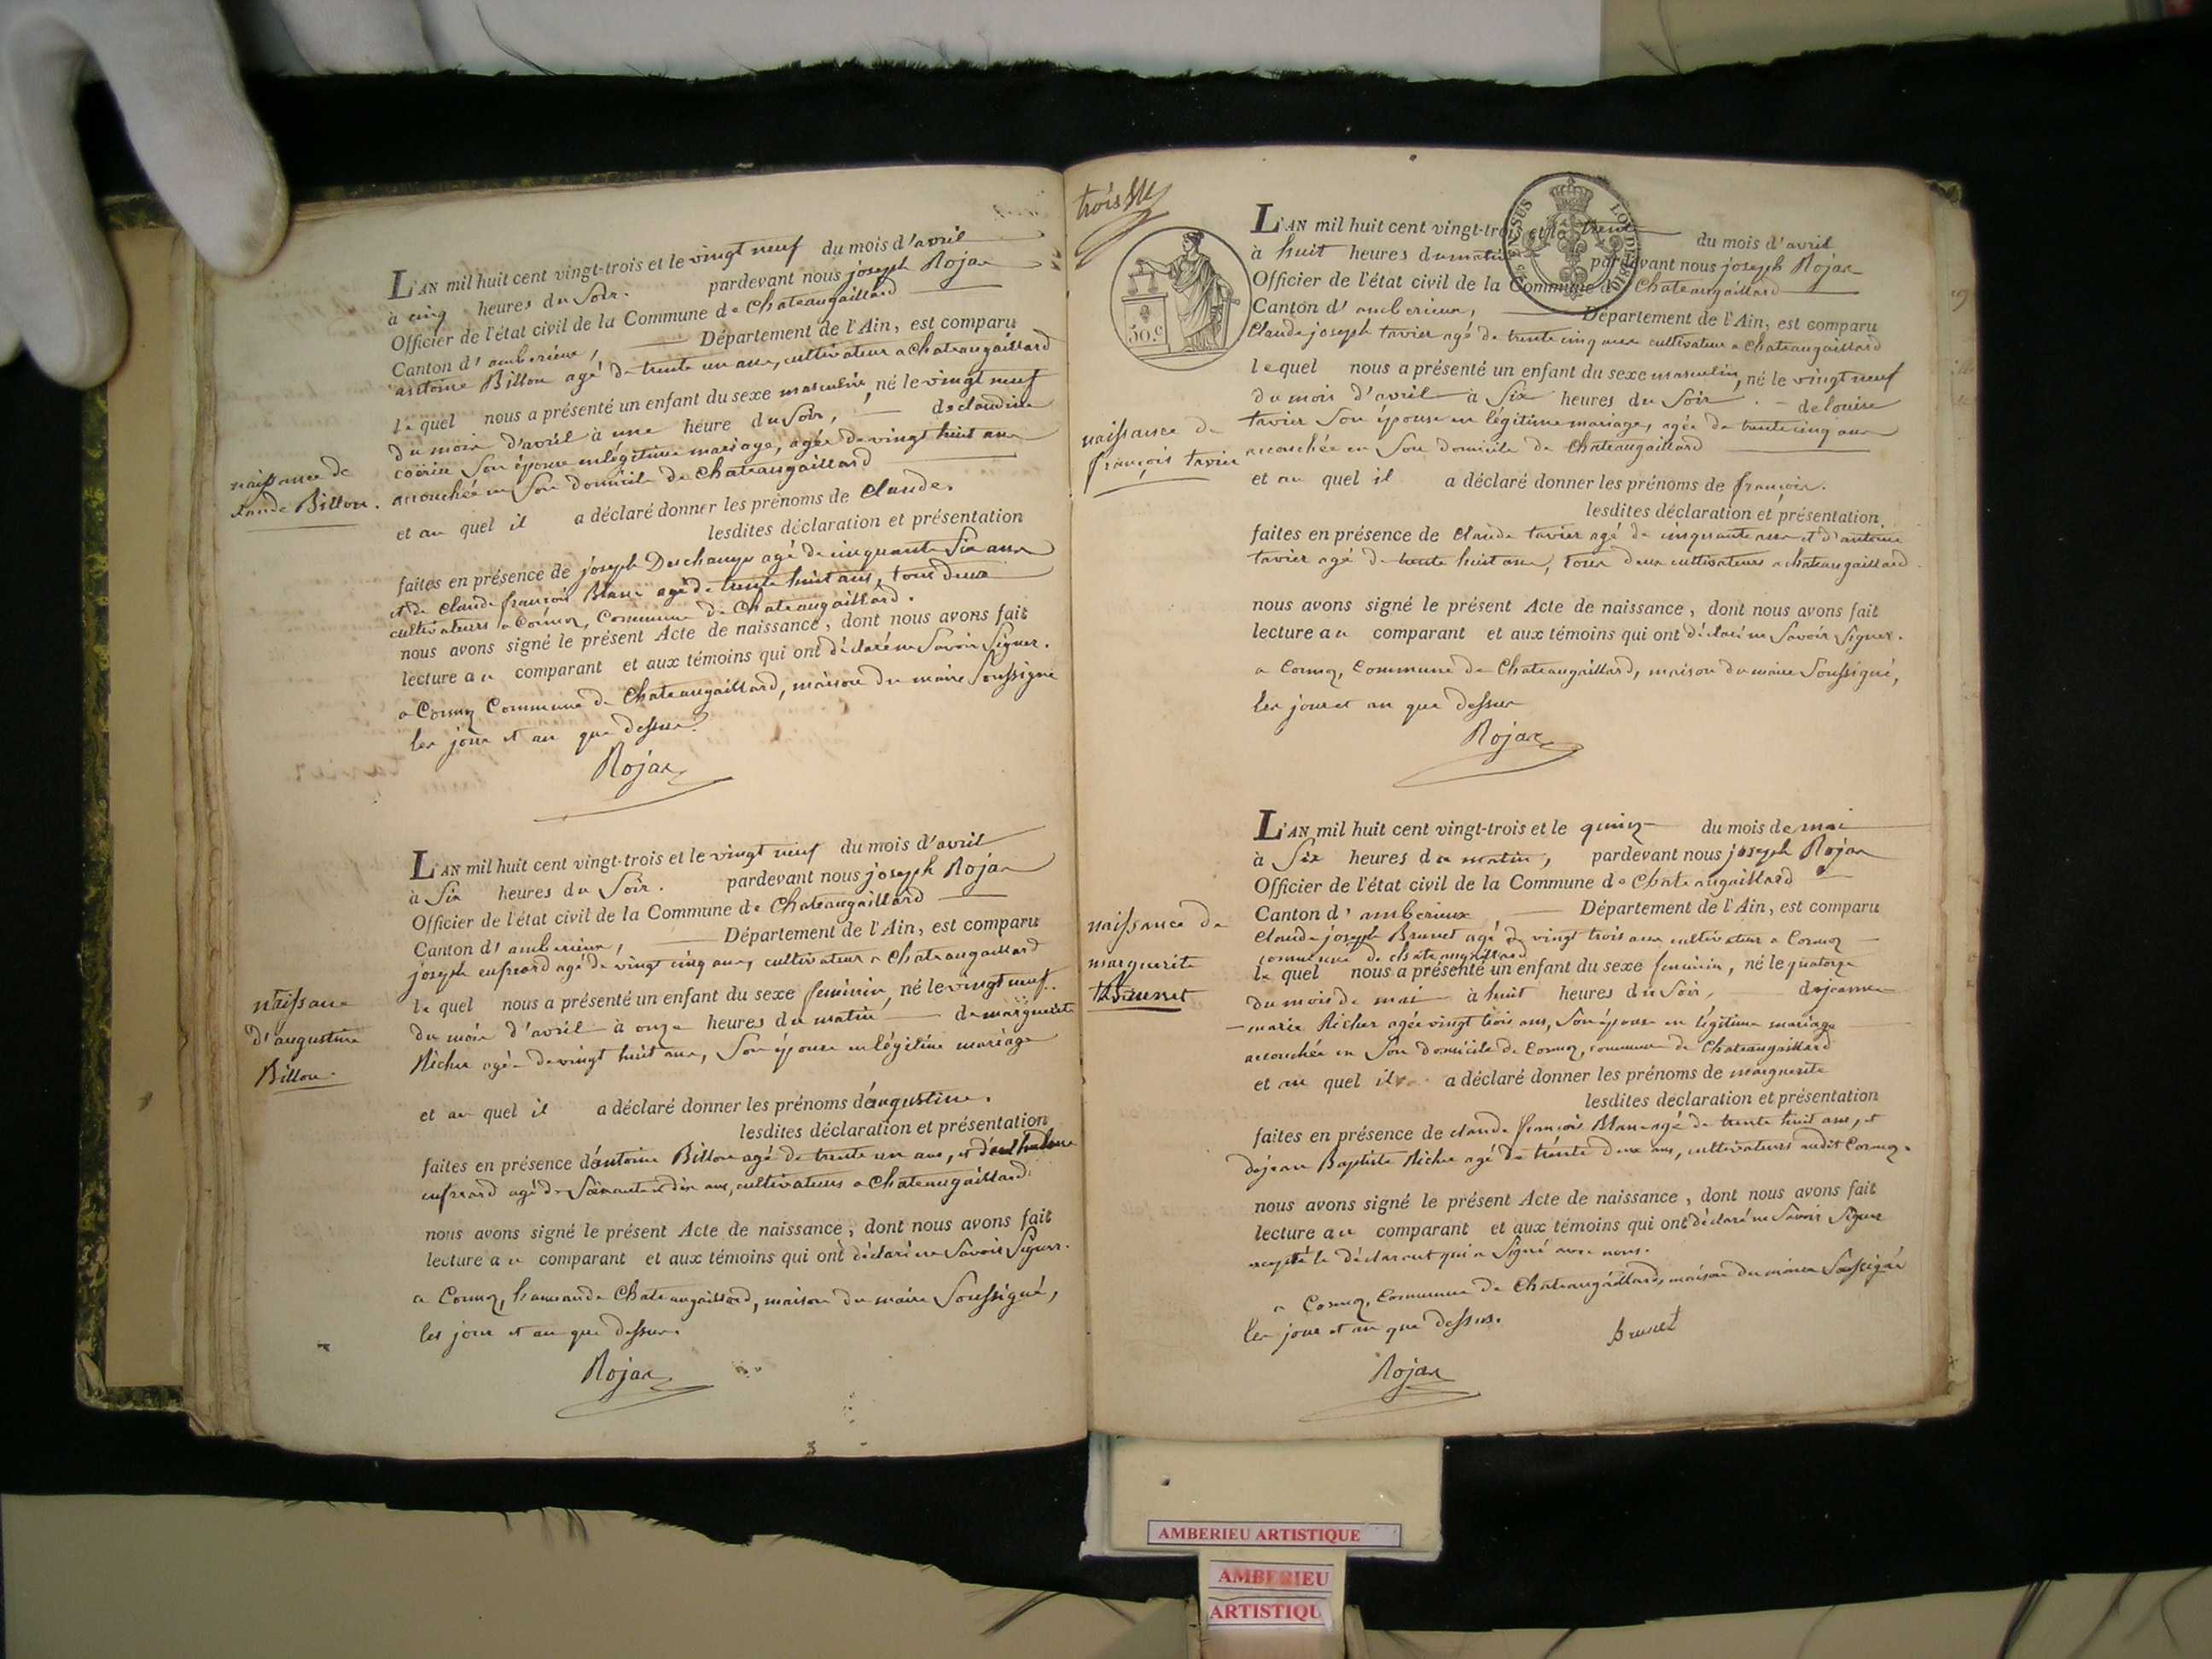 L'AN mil huit cent vingt-trois et le vingt neuf du mois d'avril
à cinq heures du Soir. pardevant nous joseph Rojar
Officier de l'état civil de la Commune de Chateaugaillard
Canton d'amberieux, Département de l'Ain, est comparu
antoine Billon agé de trente un ans, cultivateur a Chateaugaillard
le quel nous a présenté un enfant du sexe masculin, né le vingt neuf
du mois d'avril à une heure du Soir, de claudine
Son épouse en légitime mariage, agée de vingt huit ans
accouchée en Son domicile de Chateaugaillard
et au quel il a déclaré donner les prénoms de Claude.
lesdites déclaration et présentation
faites en présence de joseph Deschamps agé de cinquante Six ans
et de Claude françois Blanc agé de trente huit ans, tous deux
cultivateurs a Cormoz, Commune de Chateaugaillard.
nous avons signé le présent Acte de naissance, dont nous avons fait
lecture au comparant et aux témoins qui ont déclaré ne Savoir Signer.
a Cormoz Commune de Chateaugaillard, maison du maire Soussigné
les jour et an que dessus.
Rojar
naissance de
Claude Billon.
L'AN mil huit cent vingt-trois et le vingt neuf du mois d'avril
à Six heures du Soir. pardevant nous joseph Rojar
Officier de l'état civil de la Commune de Chateaugaillard
Canton d'amberieux, Département de l'Ain, est comparu
joseph agé de vingt cinq ans, cultivateur a Chateaugaillard
le quel nous a présenté un enfant du sexe feminin, né le vingt neuf.
du mois d'avril à onze heures du matin de marguerite
Richer agée de vingt huit ans, Son épouse en légitime mariage
et au quel il a déclaré donner les prénoms d'augustine.
lesdites déclaration et présentation
faites en présence d'antoine Billon agé de trente un ans, et d'anthelme
agé de Soixante et dix ans, cultivateurs a Chateaugaillard.
nous avons signé le présent Acte de naissance, dont nous avons fait
lecture au comparant et aux témoins qui ont déclaré ne Savoir Signer.
a Cormoz, hameau de Chateaugaillard, maison du maire Soussigné,
les jour et an que dessus.
Rojar
naissance
d'augustine
Billon.
trois
50.c
L'AN mil huit cent vingt-trois et le trente du mois d'avril
à huit heures du matin pardevant nous joseph Rojar
Officier de l'état civil de la Commune de Chateaugaillard
Canton d'amberieux, Département de l'Ain, est comparu
Claude joseph tavier agé de trente cinq ans cultivateur a Chateaugaillard
lequel nous a présenté un enfant du sexe masculin, né le vingt neuf
du mois d'avril à Six heures du Soir. de louise
tavier Son épouse en légitime mariage, agée de trente cinq ans
accouchée en Son domicile de Chateaugaillard
et au quel il a déclaré donner les prénoms de françois.
lesdites déclaration et présentation
faites en présence de Claude tavier agé de cinquante ans et d'antoine
tavier agé de trente huit ans, tous deux cultivateurs a chateaugaillard.
nous avons signé le présent Acte de naissance, dont nous avons fait
lecture au comparant et aux témoins qui ont déclaré ne Savoir Signer.
a Cormoz, Commune de Chateaugaillard, maison du maire Soussigné,
les jour et an que dessus
Rojar
naissance de
françois tavier
L'AN mil huit cent vingt-trois et le quinze du mois de mai
à Six heures du matin, pardevant nous joseph Rojar
Officier de l'état civil de la Commune de Chateaugaillard
Canton d'amberieux, Département de l'Ain, est comparu
Claude joseph Brunet agé de vingt trois ans cultivateur a Cormoz
commune de chateaugaillard
le quel nous a présenté un enfant du sexe feminin, né le quatorze
du mois de mai à huit heures du Soir, de jeanne
marie Richer agée vingt trois ans, Son épouse en légitime mariage
accouchée en Son domicile de Cormoz, commune de Chateaugaillard
et au quel il a déclaré donner les prénoms de marguerite
lesdites déclaration et présentation
faites en présence de claude françois Blanc agé de trente huit ans, et
de jean Baptiste Richer agé de trente deux ans, cultivateurs audit Cormoz.
nous avons signé le présent Acte de naissance, dont nous avons fait
lecture au comparant et aux témoins qui ont déclaré ne Savoir Signer
excepté le déclarant qui a Signé avec nous.
a Cormoz, Commune de Chateaugaillard, maison du maire Soussigné
les jour et an que dessus.
brunet
Rojar
naissance de
marguerite
Brunet
AMBERIEU ARTISTIQUE
AMBERIEU
ARTISTIQU